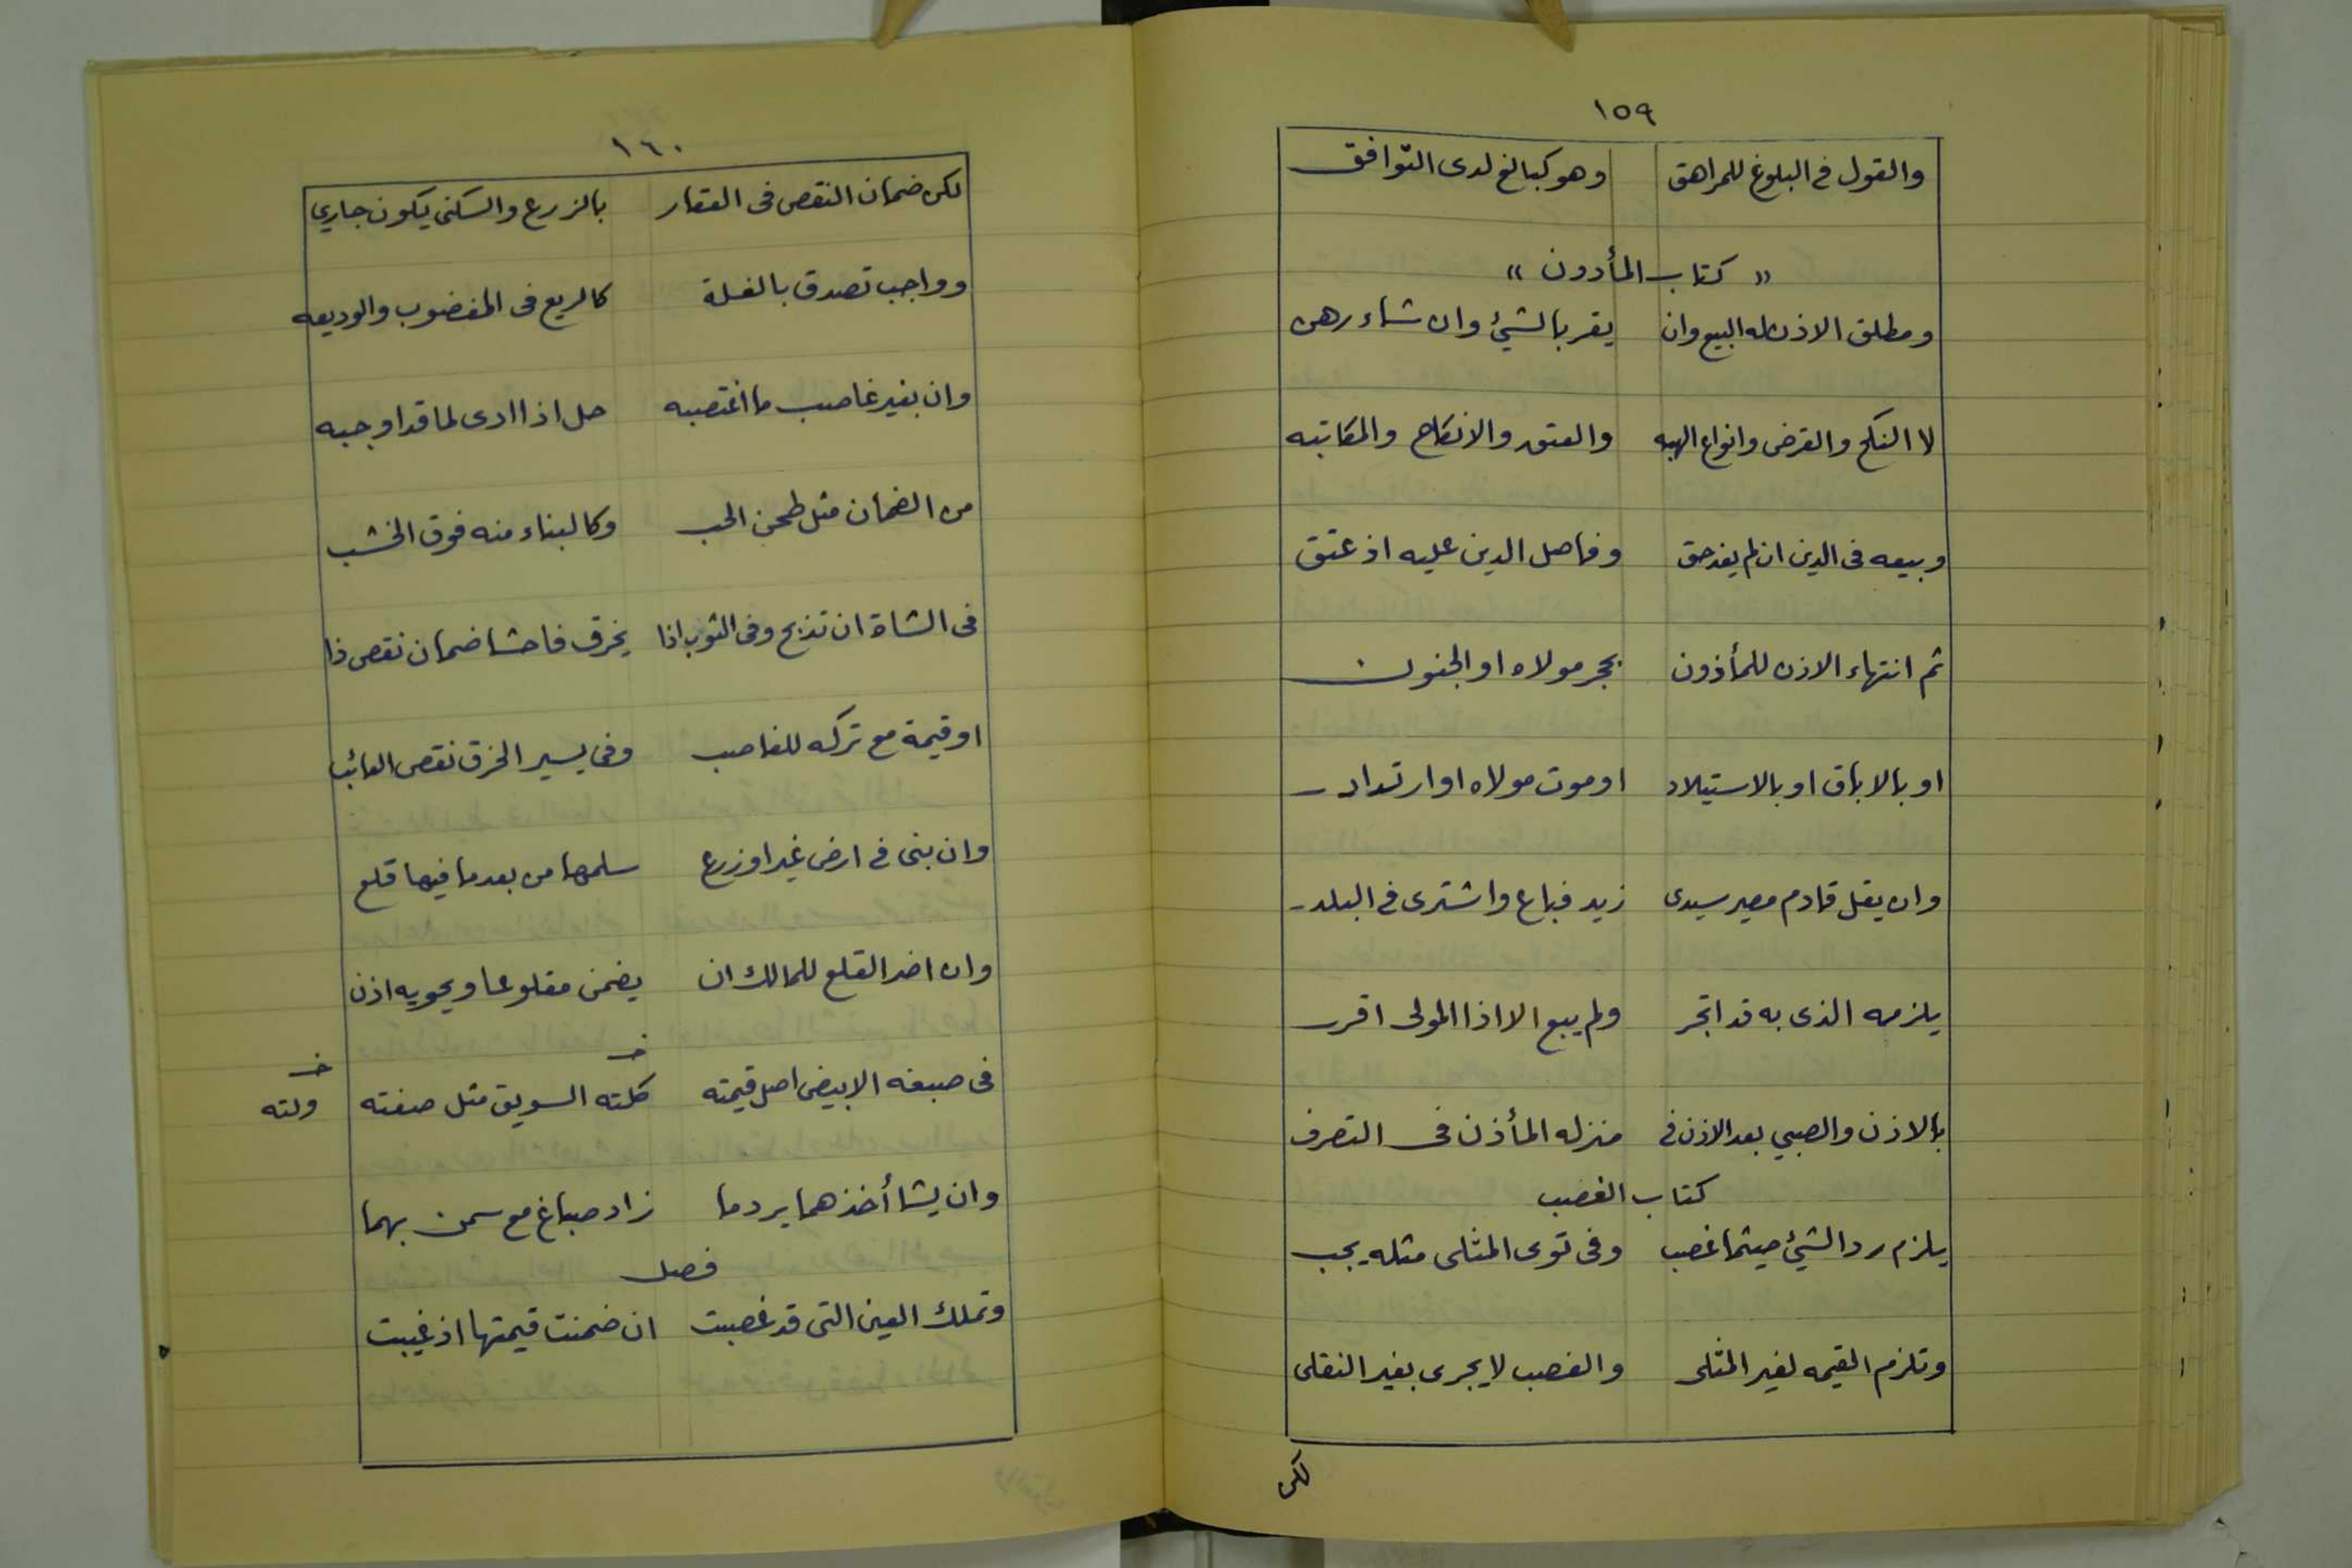 ١٥٩
والقول في البلوغ للمراهق وهو كبالغ لدى التوافق
« كتاب المأدون »
ومطلق الاذن له البيع وان يقر بالشيئ وان شاء رهن
لا النكح والقرض وانواع الهبه والعتق والانكاح والمكاتبه
وبيعه فى الدين ان لم يفد حق وفاصل الدين عليه اذ عتق
ثم انتهاء الاذن للمأذون بحجر مولاه او الجنون
او بالاباق او بالاستيلاد او موت مولاه او ارتداد
وان يقل قادم مصر سيدى زيد فباع واشترى في البلد
يلزمه الذى به قد اتجر ولم يبع الا اذا المولى اقر
بالاذن والصبي بعد الاذن في منزله المأذن فى التصرف
كتاب الغصب
يلزم رد الشيئ حيثما غصب وفى توى المثلى مثله يجب
وتلزم القيمه لغير المثلى والغصب لا يجرى بغير النقلى
لكن
١٦٠
لكن ضمان النقص فى العقار بالزرع والسكنى يكون جاري
وواجب تصدق بالغلة كالربع فى المغضوب والوديعه
وان يغير غاصب ما اغتصبه حل اذا ادى لما قد اوجبه
من الضمان مثل طحن الحب وكالبناء منه فوق الخشب
فى الشاة ان تذبح وفى الثوب اذا يخرق فاحشا ضمان نقص ذا
او قيمة مع تركه للغاصب وفى يسير الخرق نقص العائب
وان بنى في ارض غير او زرع سلمها من بعد ما فيها قلع
وان اضر القلع للمالك ان يضمن مقلوعا ويحويه اذن
فى صبغه الابيض اصل قيمته كلته السويق مثل صفته
خـ ولته
وان يشا أخذهما يرد ما زاد صباغ مع سمن بهما
فصل
وتملك العين التى قد غصبت ان ضمنت قيمتها اذ غيبت